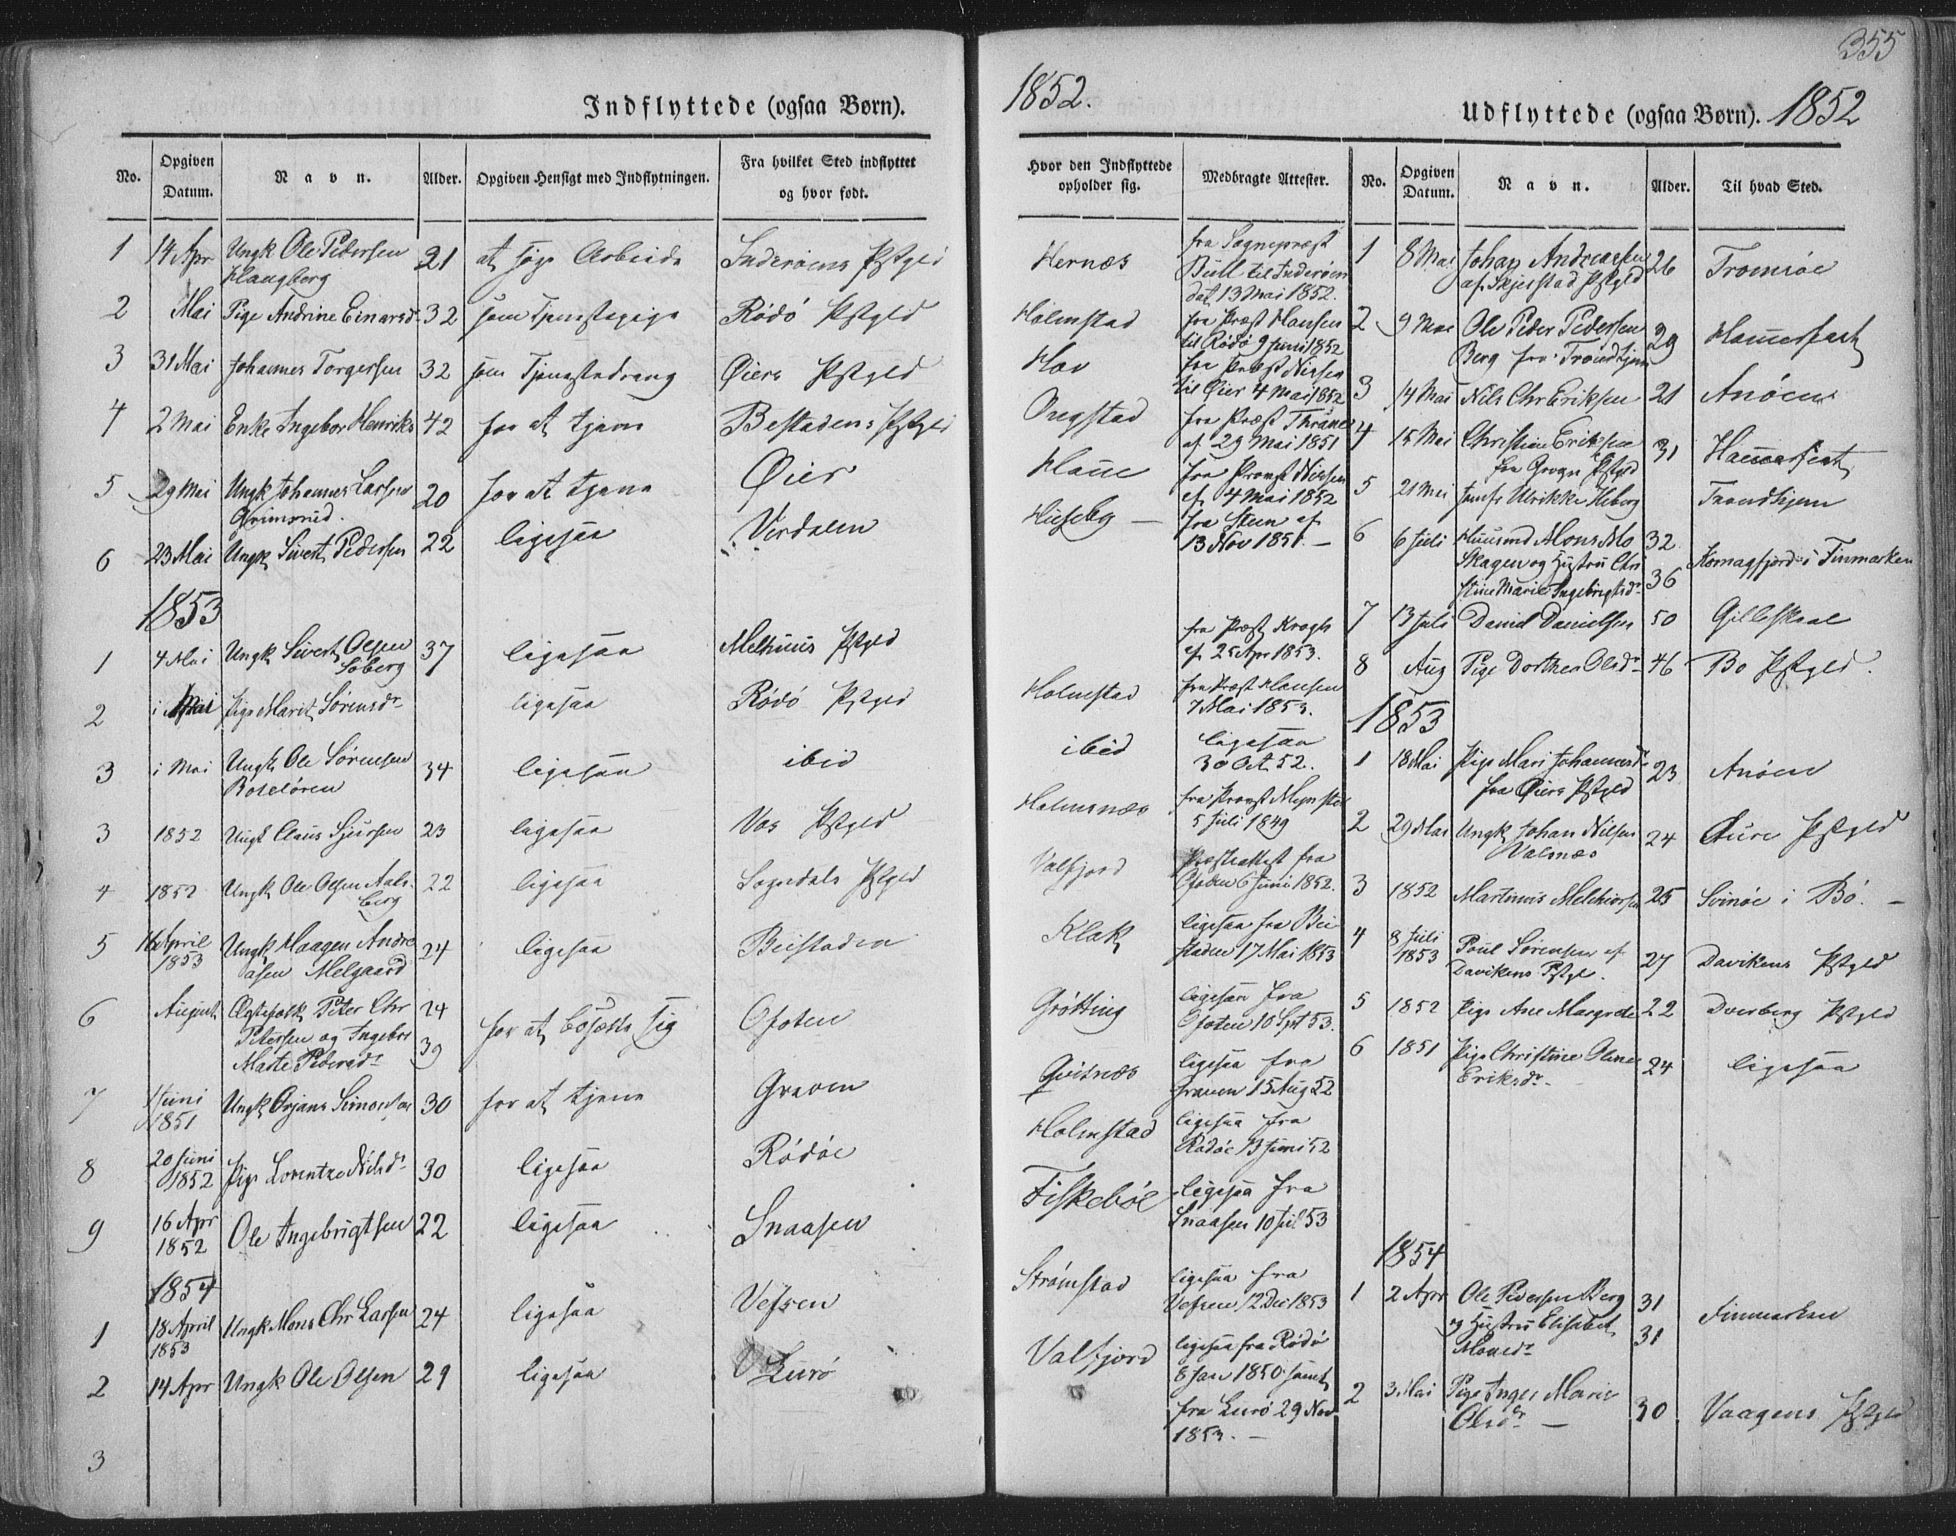 355
Indflyttede (ogsaa Børn).
1852.
Udflyttede (ogsaa Børn). 1852
No.
Opgiven Datum.
Navn.
Alder.
Opgiven Hensigt med Indflytningen.
Fra hvilket Sted indflyttet og hvor født.
1 14 Apr Ungk Ole Pedersen 21 at søge Arbeide Inderøens Pstgld
2 Mai Pige Andrine Einarsd. 32 som Tjenstepige Rödö Pstgld
3 31 Mai Johannes Torgersen 32 som Tjenstedreng Øiers Pstgld
4 2 Mai Enke Ingebor Henriks 42 for at tjene Pstgld
5 29 Mai Ungk Johannes Larsen 20 for at tjene Øier
Grimsrud.
6 23 Mai Ungk Sivert Pedersen 22 ligesaa Verdalen
1853
1 4 Mai Ungk Sivert Olsen 37 ligesaa Melhuus Pstgld
Soberg
2 i Mai Pige Marit Sørensdr ligesaa Rödö Pstgld
3 i Mai Ungk Ole Sörensen 34 ligesaa ibid
3 1852 Ungk Claus Sjursen 23 ligesaa Vos Pstgld
4 1852 Ungk Ole Olsen Aals- 22 ligesaa Sogndals Pstgld
berg
5 16 April Ungk Haagen Andre 24 ligesaa Beistaden
1853 asen Melgaard
6 August Ægtefolk Peter Chr 24 for at bosætte sig Ofoten
Petersen og Ingebor
Marte Pedersdr 39
7 Juni Ungk Ørjans 30 for at tjene Graven
1851
8 20 Juni Pige Lorentze Nilsdr 30 ligesaa Rödöe
1852
9 16 Apr Ole Ingebrigtsen 22 ligesaa Snaasen
1852
1854
1 18 April Ungk Mons Chr Larsen 24 ligesaa Vefsen
1853
2 14 Apr Ungk Ole Olsen 29 ligesaa Lurö
3
Hvor den Indflyttede opholder sig.
Medbragte Attester.
Hernæs fra Sognepræst
Bull til Inderöen
dat 13 Mai 1852.
Holmstad fra Præst Hansen
til Rödö 9 Juni 1852
Hov fra Provst Nissen
til Øier 4 Mai 1852
Ongstad fra Præst
af 29 Mai 1851
fra Provst Nissen
af 4 Mai 1852
Huseby — fra Steen af
13 Nov 1851. —
fra Præst Krogh
af 25 Apr 1853.
Holmstad fra Præst Hansen
7 Mai 1853.
ibid ligesaa
30 Oct. 52.
Holmsnæs fra Provst
5 Juli 1849
Valfjord Præsteattest fra
Ofoten 6 Juni 1852.
Klak ligesaa fra Bei
staden 17 Mai 1853
Grötting ligesaa fra
Ofoten 10 Spt 53.
Qvitnæs ligesaa fra
Graven 15 Aug 52
Holmstad ligesaa fra
Rödöe 13 Juni 52
Fiskeböe ligesaa fra
Snaasen 10 Jul 53
Strømstad ligesaa fra
Vefsen 12 Dec 1853
Valfjord ligesaa fra Rödö
8 Jan 1850 samt
fra Lurö 29 Nov
1853. —
No.
Opgiven Datum.
Navn.
Alder.
Til hvad Sted.
1 8 Mai Johan Andreassen 26 Tromsöe
af Skjerstad Pstgld
2 9 Mai Ole Peder Pedersen 29 Hammerfest
Berg fra Trondhjem
3 14 Mai Nils Chr Eriksen 21 Anöen
4 15 Mai Christian Eriksen 31 Hammerfest
fra Pstgld
5 21 Mai Jomfr Ulrikke Heberg Trondhjem
6 6 Juli Huusmd Mons Mo 32
Skagen og Hustru Chri
stine Marie Ingebrigtsdr 36 Komagfjord i Finmarken
7 13 Juli Daniel Danielsen 50 Gilleskaal
8 Aug Pige Dorthea Olsdr 46 Bö Pstgld.
1853
1 18 Mai Pige Mari Johannesdr 23 Anöen
fra Øiers Pstgld
2 29 Mai Ungk Johan Nilsen 24 Aure Pstgld
Valsnæs
3 1852 Martinus Melchiorsen 25 Svinöe i Bö. —
4 8 Juli Poul Sörensen af 27 Davikens Pstgld
1853 Davikens Pstgl.
5 1852 Pige Ane Margrete 22 Dverberg Pstgld
6 1851 Pige Christine Oline 24 ligesaa
Eriksdr
1854
1 2 Apr Ole Pedersen Berg 31 Finmarken
og Hustru Elisabet 31
Monsdr
2 3 Mai Pige Inger Marie 30 Vaagens Pstgld
Olsdr —